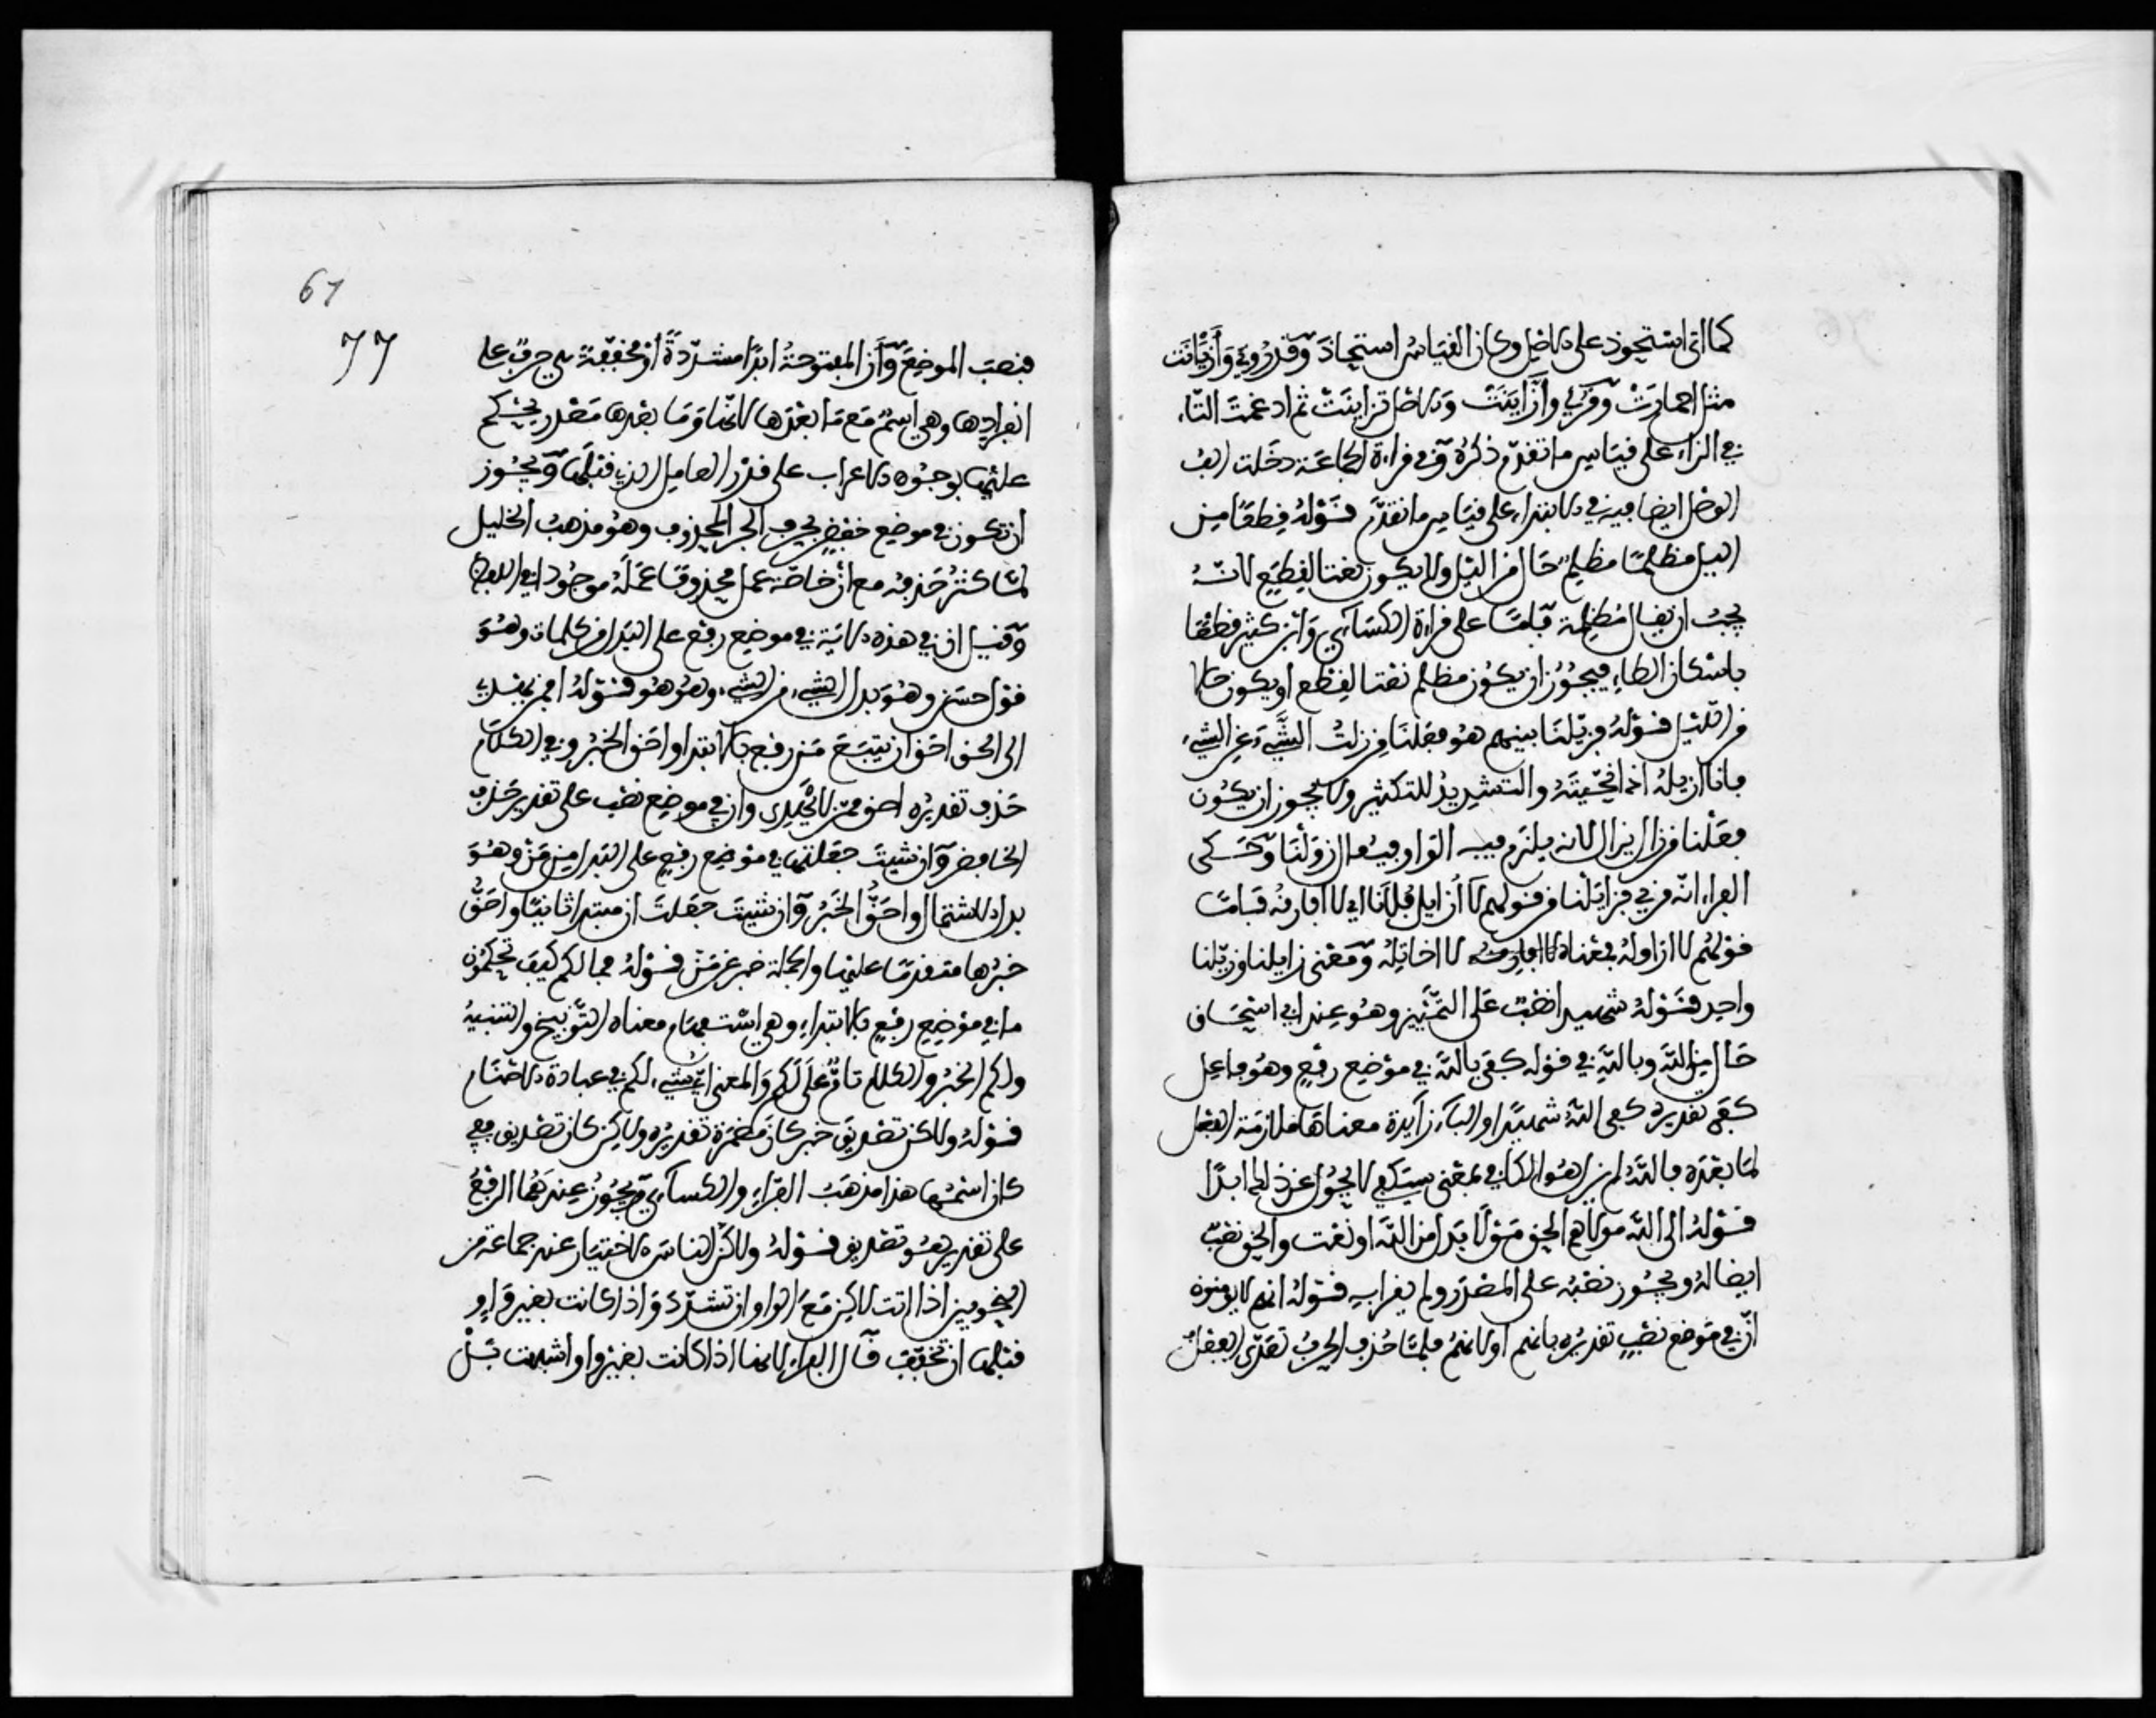 كما اتى استحوذ على الاصل وكان القياس استحاذ وقد روي وازيانت
مثل احمارت وقرئ وازاينت والاصل تزاينت ثم ادغمت التاء
في الزاي على قياس ما تقدم ذكره وفي قراءة الجماعة دخلت الف
الوصل ايضا فيه في الابتداء على قياس ما تقدم قوله قطعا من
اليل مظلما مظلما حال من اليل ولا يكون نعتا لقطع لانه
يجب ان يقال مظلمة فاما على قراءة الكسآئي وابن كثير قطعا
باسكان الطاء فيجوز ان يكون مظلم نعتا لقطع او يكون حالا
من الليل قوله فزيلنا بينهم هو فعلنا من زلت الشيء عن الشيء
فانا ازيله اذا نحيته والتشديد للتكثير ولا يجوز ان يكون
فعلنا من زال يزال لانه يلزم فيه الواو فيقال زولنا وحكى
الفراء انه قرئ فزايلنا من قولهم لا ازايل فلانا اي لا افارقه فاما
قولهم لا ازاوله فمعناه لا اخاتله ومعنى زايلنا وزيلنا
واحد قوله شهيدا نصب على التمييز وهو عند ابي اسحاق
حال من الله وبالله في قوله كفى بالله في موضع رفع وهو فاعل
كفى تقديره كفى الله شهيدا والباء زآيدة معناها ملازمة الفعل
لما بعده فالله لم يزل هو الكافي بمعنى سيكفي لا يحول عن ذلك ابدا
قوله الى الله مولاهم الحق مولا بدل من الله او نعت والحق نعت
ايضا له ويجوز نصبه على المصدر ولم يقرا به قوله انهم لا يومنون
ان في موضع نصب تقديره بانهم او لانهم فلما حذف الحرف تعدى الفعل
61
77
فنصب الموضع وان المفتوحة ابدا مشددة او مخففة هي حرف على
انفرادها وهي اسم مع ما بعدها لانها وما بعدها مصدر يحكم
عليها بوجوه الاعراب على قدر العامل الذي قبلها ويجوز
ان تكون في موضع خفض بحرف الجر المحذوف وهو مذهب الخليل
لما كثر حذفه مع ان خاصة عمل محذوفا عمله موجودا في اللفظ
وقيل ان في هذه الاية في موضع رفع على البدل من كلمات وهو
قول حسن وهو بدل الشيء من الشيء وهو هو قوله افمن يهدي
الى الحق احق ان يتبع من رفع بالابتدا واحق الخبر وفي الكلام
حذف تقديره احق ممن لا يهدي وان في موضع نصب على تقدير حذف
الخافض وان شيت جعلتها في موضع رفع على البدل من من وهو
بدل الاشتمال واحق الخبر وان شيت جعلت ان مبتدا ثانيا واحق
خبرها متقدما عليها والجملة خبر عن من قوله فما لكم كيف تحكمون
ما في موضع رفع بالابتداء وهي استفهام معناه التوبيخ والتنبيه
ولكم الخبر والكلام تام على لكم والمعنى اي شيء لكم في عبادة الاصنام
قوله ولاكن تصديق خبر كان مضمرة تقديره ولاكن كان تصديق ففي
كان اسمها هذا مذهب الفراء والكسآئي ويجوز عندهما الرفع
على تقدير هو تصديق قوله ولاكن الناس الاختيار عند جماعة من
النحويين اذا اتت لاكن مع الواو ان تشدد واذا كانت بغير واو
قبلها ان تخفف قال الفراء لانها اذا كانت بغير واو اشبهت بل